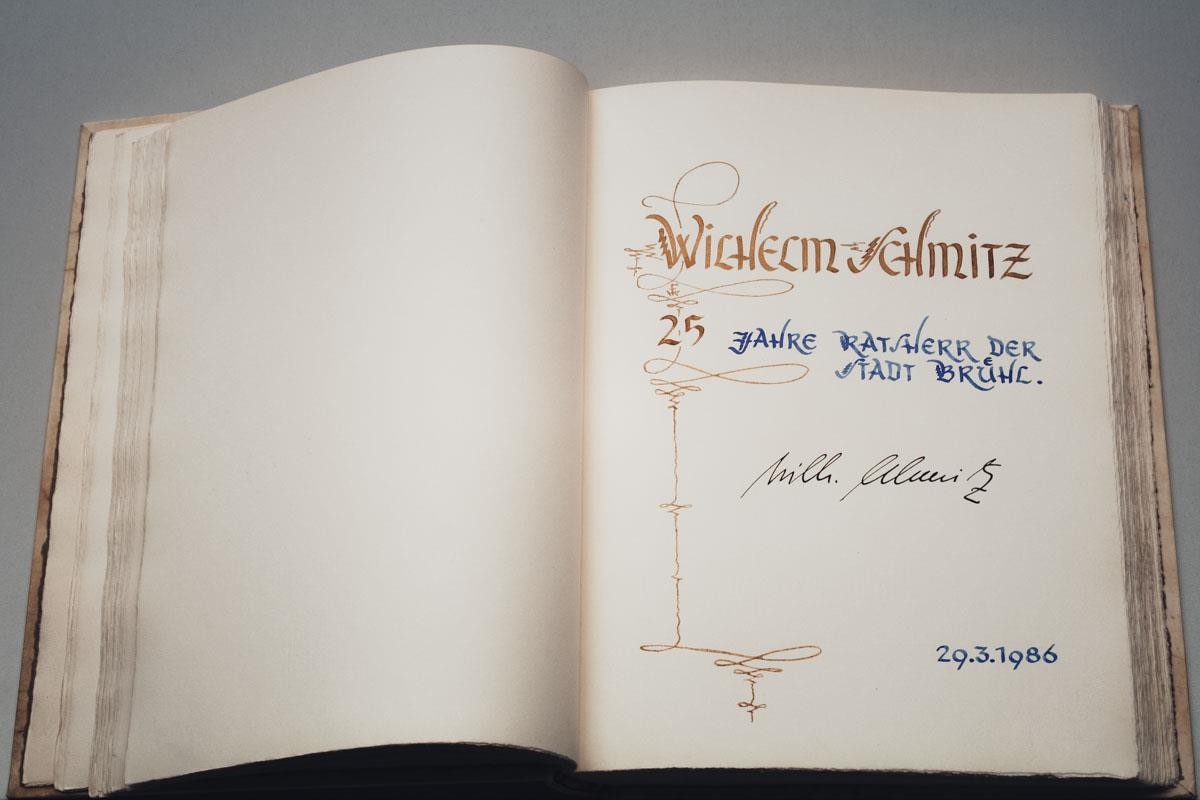 WILHELM SCHMITZ
25 JAHRE RATSHERR DER
STADT BRÜHL.
Wilh. Schmitz
29.3.1986